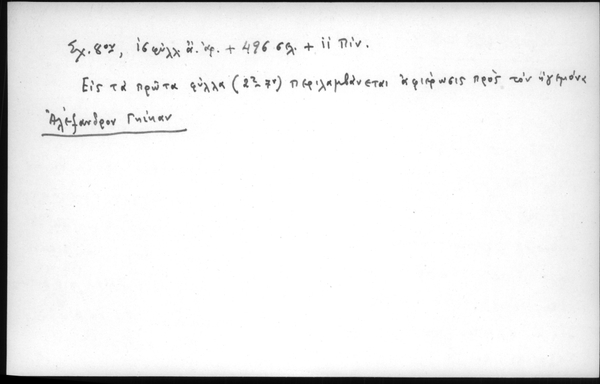 Σχ. 8ον, ις φύλλ ἄ. ἀρ. + 496 σελ. + ii Πίν.
Εἰς τὰ πρῶτα φύλλα (2ον - 7ον) περιλαμβάνεται ἀφιέρωσις πρὸς τὸν ἡγεμόνα
Ἀλέξανδρον Γκίκαν